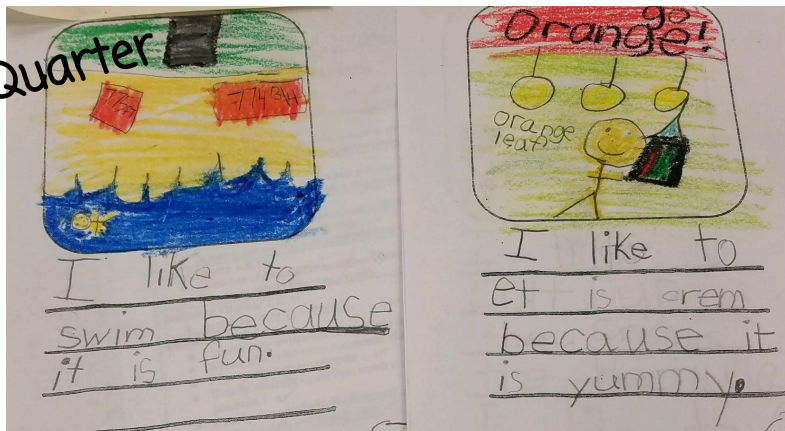 Quarter
I like to
swim because
it is fun.
go
Orange!
orange
leaf
I like to
et is crem
because it
is yummy.